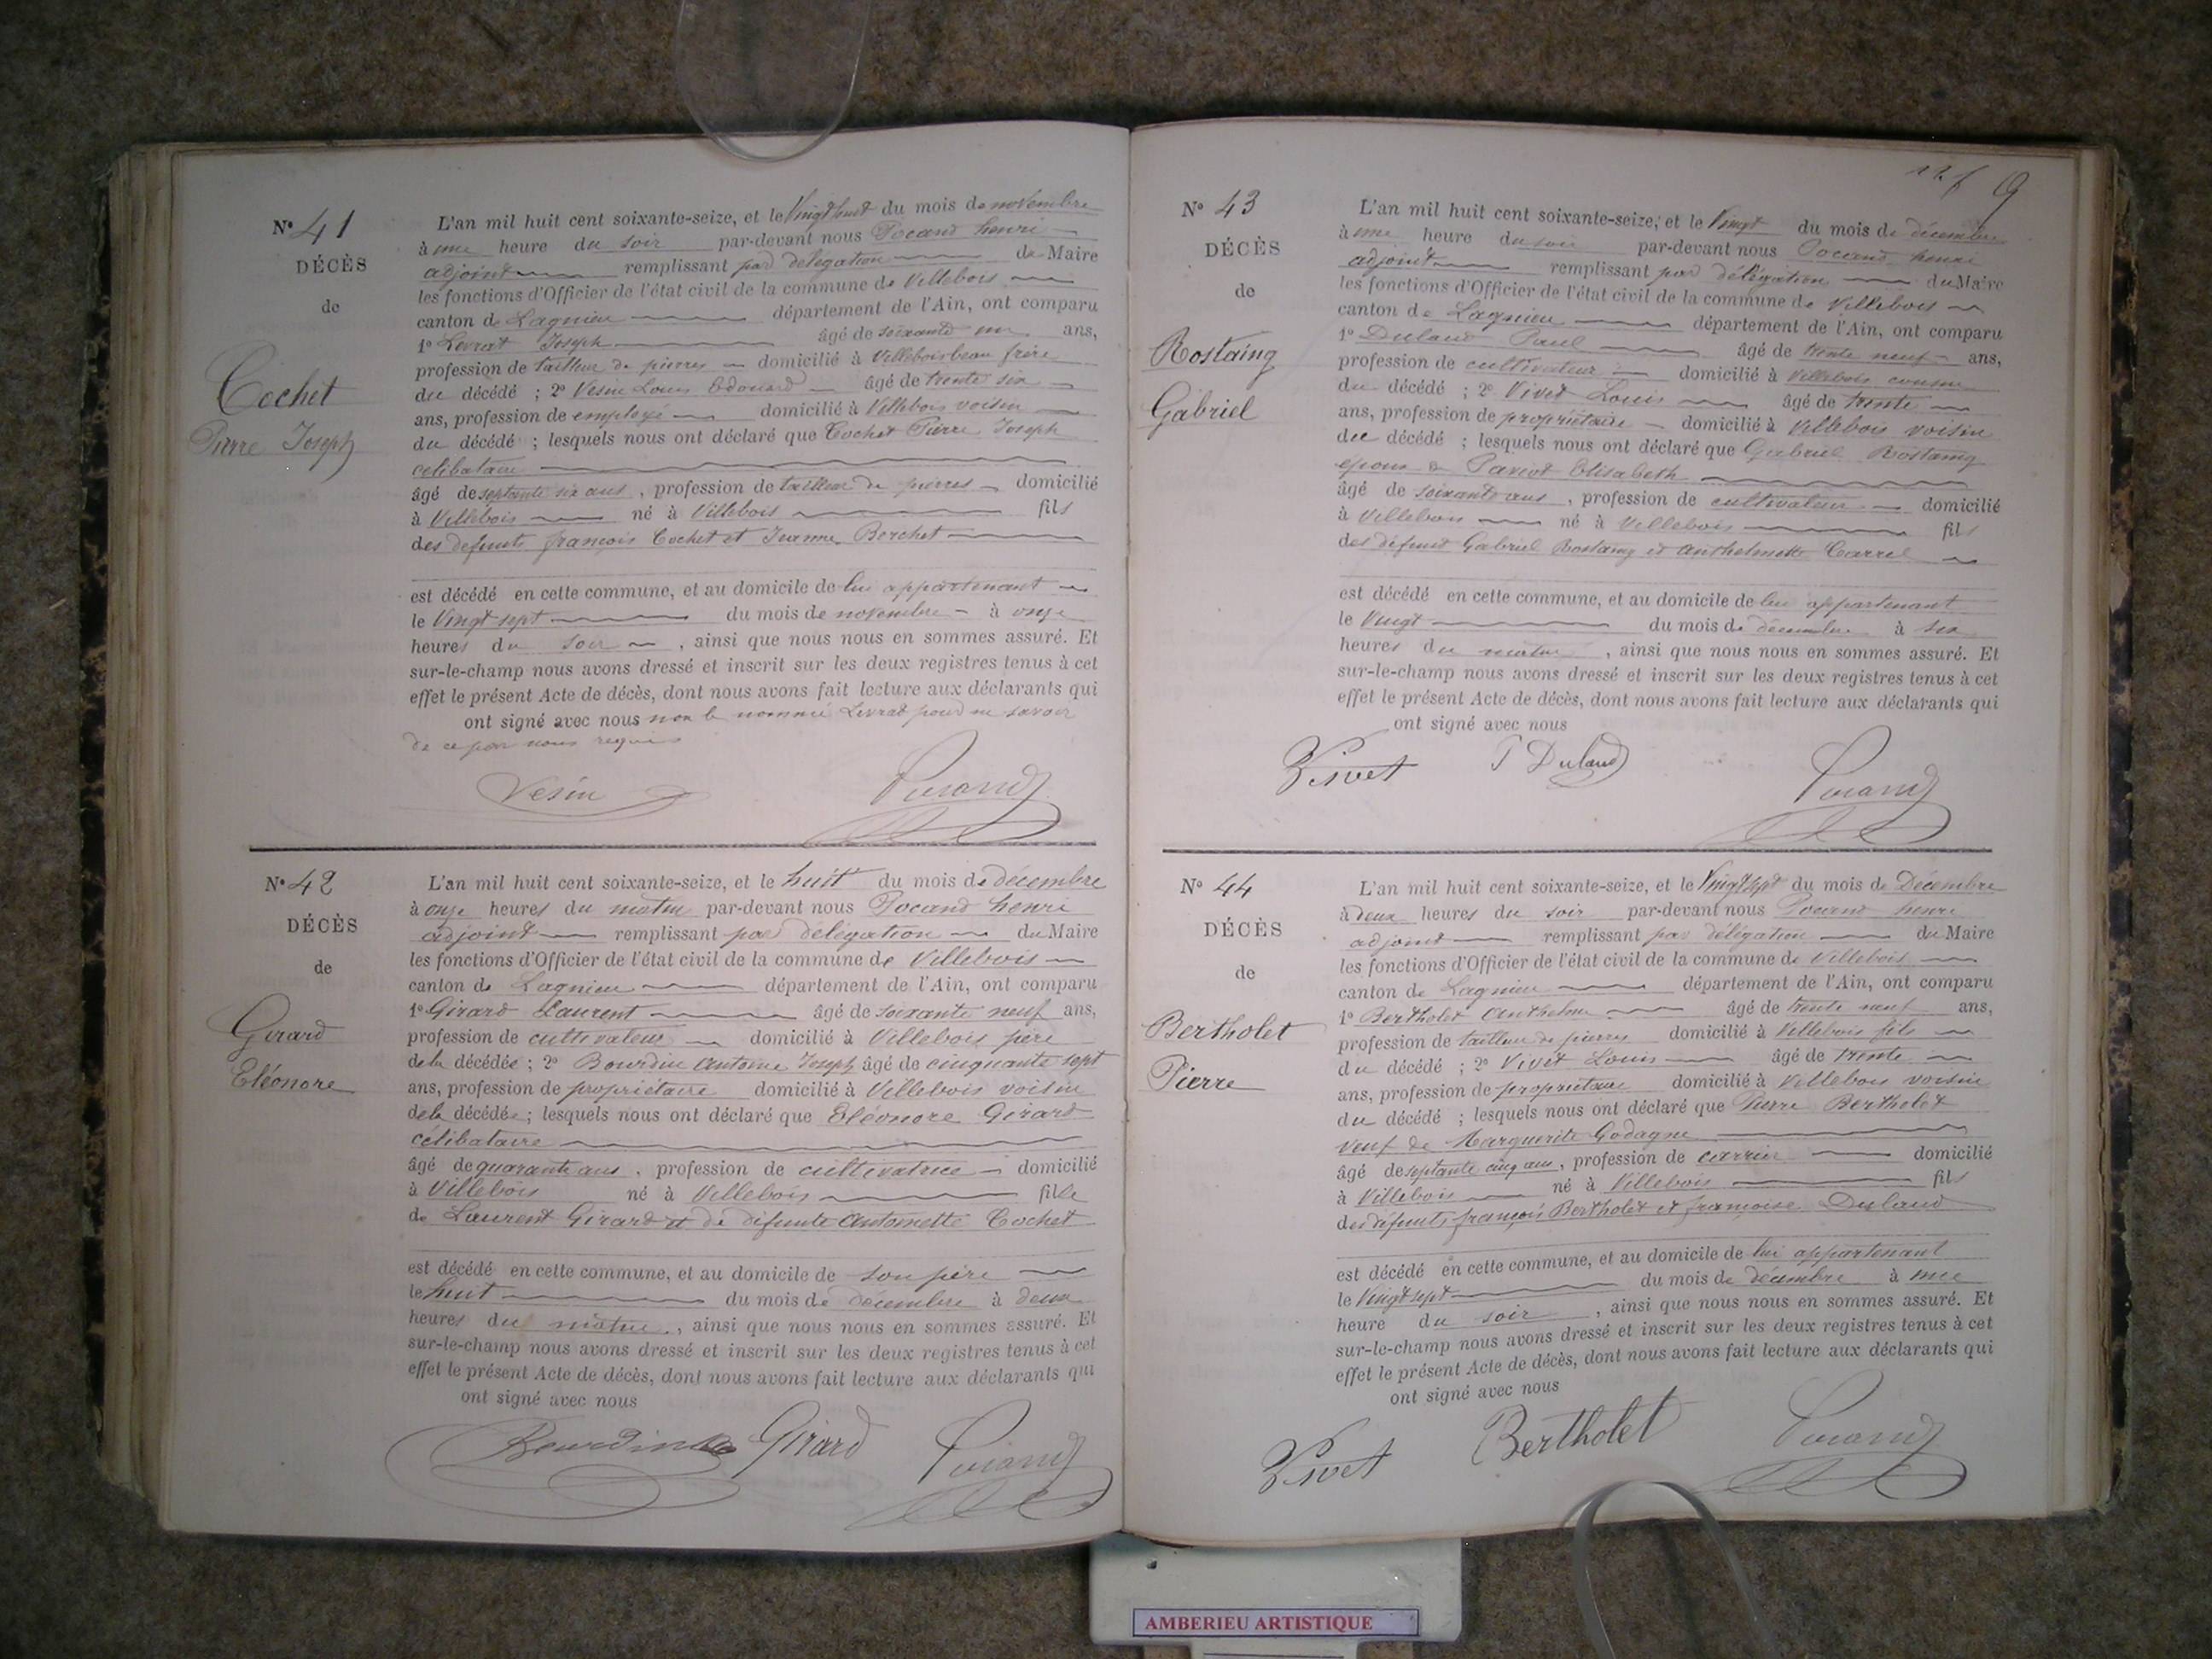 N° 41
DÉCÈS
de
Cochet
Pierre Joseph
L'an mil huit cent soixante-seize, et le Vingt huit du mois de novembre
à une heure du soir par-devant nous Pocand henri
adjoint remplissant par délégation du Maire
les fonctions d'Officier de l'état civil de la commune de Villebois
canton de Lagnieu département de l'Ain, ont comparu
1° Levrat Joseph âgé de soixante un ans,
profession de tailleur de pierres domicilié à Villebois beau frère
du décédé ; 2° Vesin Louis Edouard âgé de trente six
ans, profession de employé domicilié à Villebois voisin
du décédé ; lesquels nous ont déclaré que Cochet Pierre Joseph
célibataire
âgé de septante six ans, profession de tailleur de pierres domicilié
à Villebois né à Villebois fils
des defunts françois Cochet et Jeanne Berchet
est décédé en cette commune, et au domicile de lui appartenant
le Vingt sept du mois de novembre à onze
heures du soir, ainsi que nous nous en sommes assuré. Et
sur-le-champ nous avons dressé et inscrit sur les deux registres tenus à cet
effet le présent Acte de décès, dont nous avons fait lecture aux déclarants qui
ont signé avec nous non le nommé Levrat pour ne savoir
de ce par nous requis
Vesin Pocand
N° 42
DÉCÈS
de
Girard
Eléonore
L'an mil huit cent soixante-seize, et le huit du mois de décembre
à onze heures du matin par-devant nous Pocand henri
adjoint remplissant par délégation du Maire
les fonctions d'Officier de l'état civil de la commune de Villebois
canton de Lagnieu département de l'Ain, ont comparu
1° Girard Laurent âgé de soixante neuf ans,
profession de cultivateur domicilié à Villebois père
de la décédée ; 2° Bourdin Antoine Joseph âgé de cinquante sept
ans, profession de propriétaire domicilié à Villebois voisin
de la décédée ; lesquels nous ont déclaré que Eléonore Girard
célibataire
âgé de quarante ans, profession de cultivatrice domicilié
à Villebois né à Villebois fille
de Laurent Girard et de défunte Antoinette Cochet
est décédé en cette commune, et au domicile de son père
le huit du mois de décembre à deux
heures du matin, ainsi que nous nous en sommes assuré. Et
sur-le-champ nous avons dressé et inscrit sur les deux registres tenus à cet
effet le présent Acte de décès, dont nous avons fait lecture aux déclarants qui
ont signé avec nous
Bourdin Girard Pocand
9
N° 43
DÉCÈS
de
Rostaing
Gabriel
L'an mil huit cent soixante-seize, et le Vingt du mois de décembre
à une heure du soir par-devant nous Pocand henri
adjoint remplissant par délégation du Maire
les fonctions d'Officier de l'état civil de la commune de Villebois
canton de Lagnieu département de l'Ain, ont comparu
1° Duland Paul âgé de trente neuf ans,
profession de cultivateur domicilié à Villebois cousin
du décédé ; 2° Vivet Louis âgé de trente
ans, profession de propriétaire domicilié à Villebois voisin
du décédé ; lesquels nous ont déclaré que Gabriel Rostaing
époux de Elisabeth
âgé de soixante ans, profession de cultivateur domicilié
à Villebois né à Villebois fils
des défunt Gabriel Rostaing et Anthelmette Carrel
est décédé en cette commune, et au domicile de lui appartenant
le Vingt du mois de décembre à six
heures du matin, ainsi que nous nous en sommes assuré. Et
sur-le-champ nous avons dressé et inscrit sur les deux registres tenus à cet
effet le présent Acte de décès, dont nous avons fait lecture aux déclarants qui
ont signé avec nous
Vivet P Duland Pocand
N° 44
DÉCÈS
de
Bertholet
Pierre
L'an mil huit cent soixante-seize, et le Vingt sept du mois de Décembre
à deux heures du soir par-devant nous Pocand henri
adjoint remplissant par délégation du Maire
les fonctions d'Officier de l'état civil de la commune de Villebois
canton de Lagnieu département de l'Ain, ont comparu
1° Bertholet Anthelme âgé de trente neuf ans,
profession de tailleur de pierres domicilié à Villebois fils
du décédé ; 2° Vivet Louis âgé de trente
ans, profession de propriétaire domicilié à Villebois voisin
du décédé ; lesquels nous ont déclaré que Pierre Bertholet
veuf de Marguerite Godagne
âgé de septante cinq ans, profession de carrier domicilié
à Villebois né à Villebois fils
des défunts françois Bertholet et françoise Duland
est décédé en cette commune, et au domicile de lui appartenant
le Vingt sept du mois de décembre à une
heure du soir, ainsi que nous nous en sommes assuré. Et
sur-le-champ nous avons dressé et inscrit sur les deux registres tenus à cet
effet le présent Acte de décès, dont nous avons fait lecture aux déclarants qui
ont signé avec nous
Vivet Bertholet Pocand
AMBERIEU ARTISTIQUE